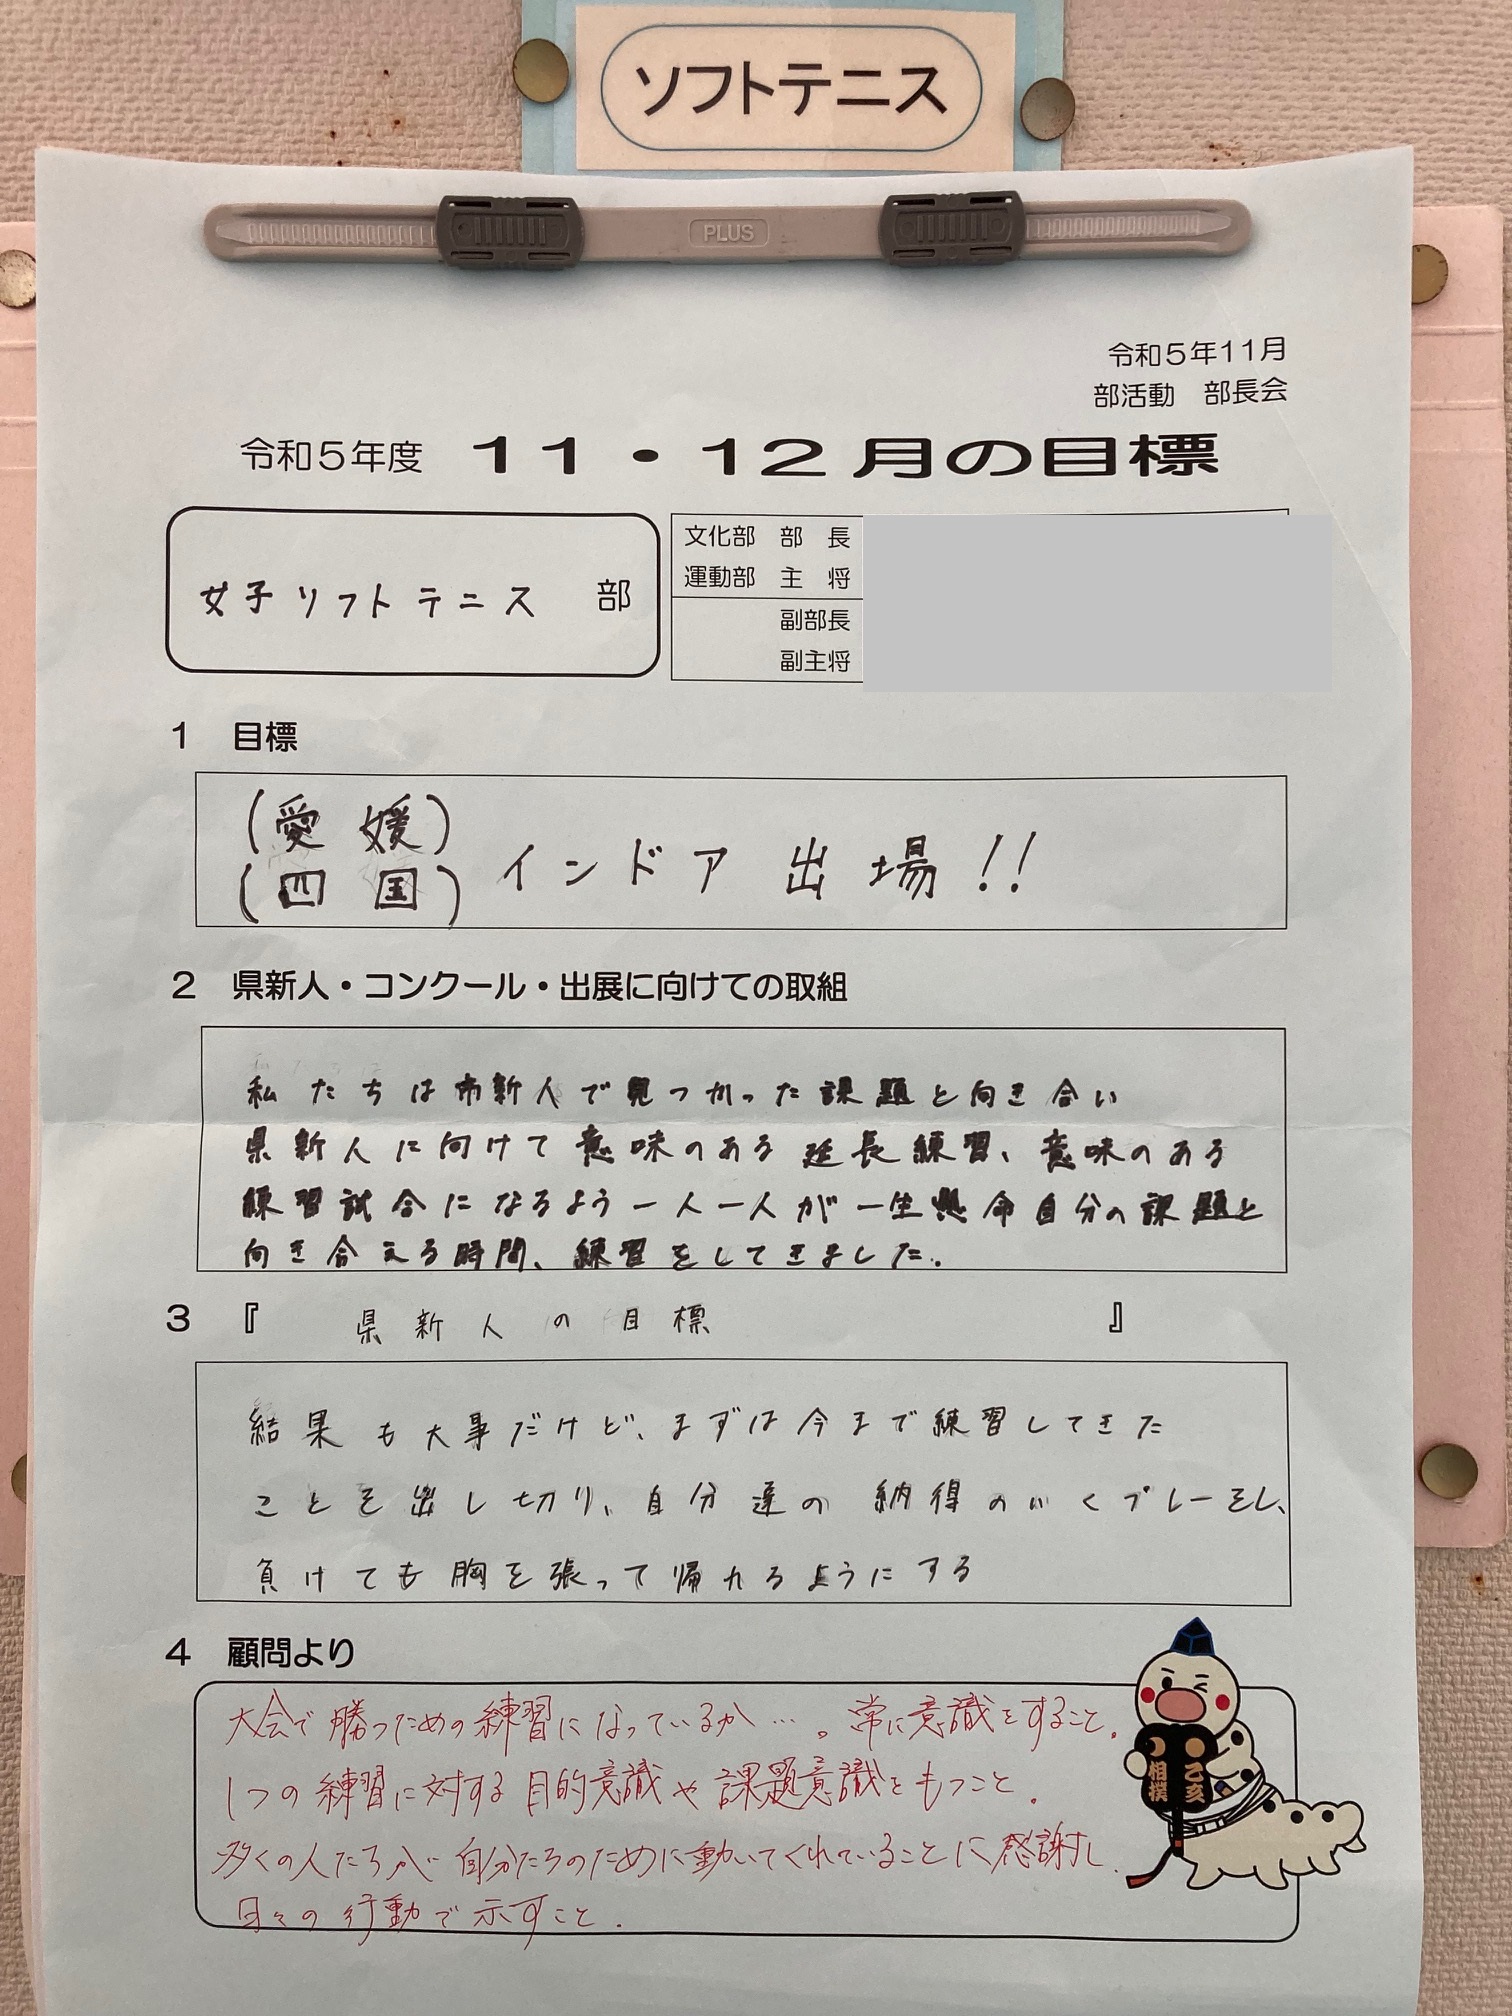 ソフトテニス
PLUS
令和5年11月
部活動　部長会
令和5年度　11・12月の目標
女子ソフトテニス　部
文化部　部　長
運動部　主　将
副部長
副主将
1　目標
(愛媛)
(四国)
インドア出場!!
2　県新人・コンクール・出展に向けての取組
私たちは市新人で見つかった課題と向き合い
県新人に向けて意味のある延長練習、意味のある
練習試合になるよう一人一人が一生懸命自分の課題と
向き合える時間、練習をしてきました。
3　『　県新人の目標　』
結果も大事だけど、まずは今まで練習してきた
ことを出し切り、自分達の納得のいくプレーをし、
負けても胸を張って帰れるようにする
4　顧問より
大会で勝つための練習になっているか…。常に意識をすること。
1つの練習に対する目的意識や課題意識をもつこと。
多くの人たちが自分たちのために動いてくれていることに感謝し、
日々の行動で示すこと。
乙亥
相撲